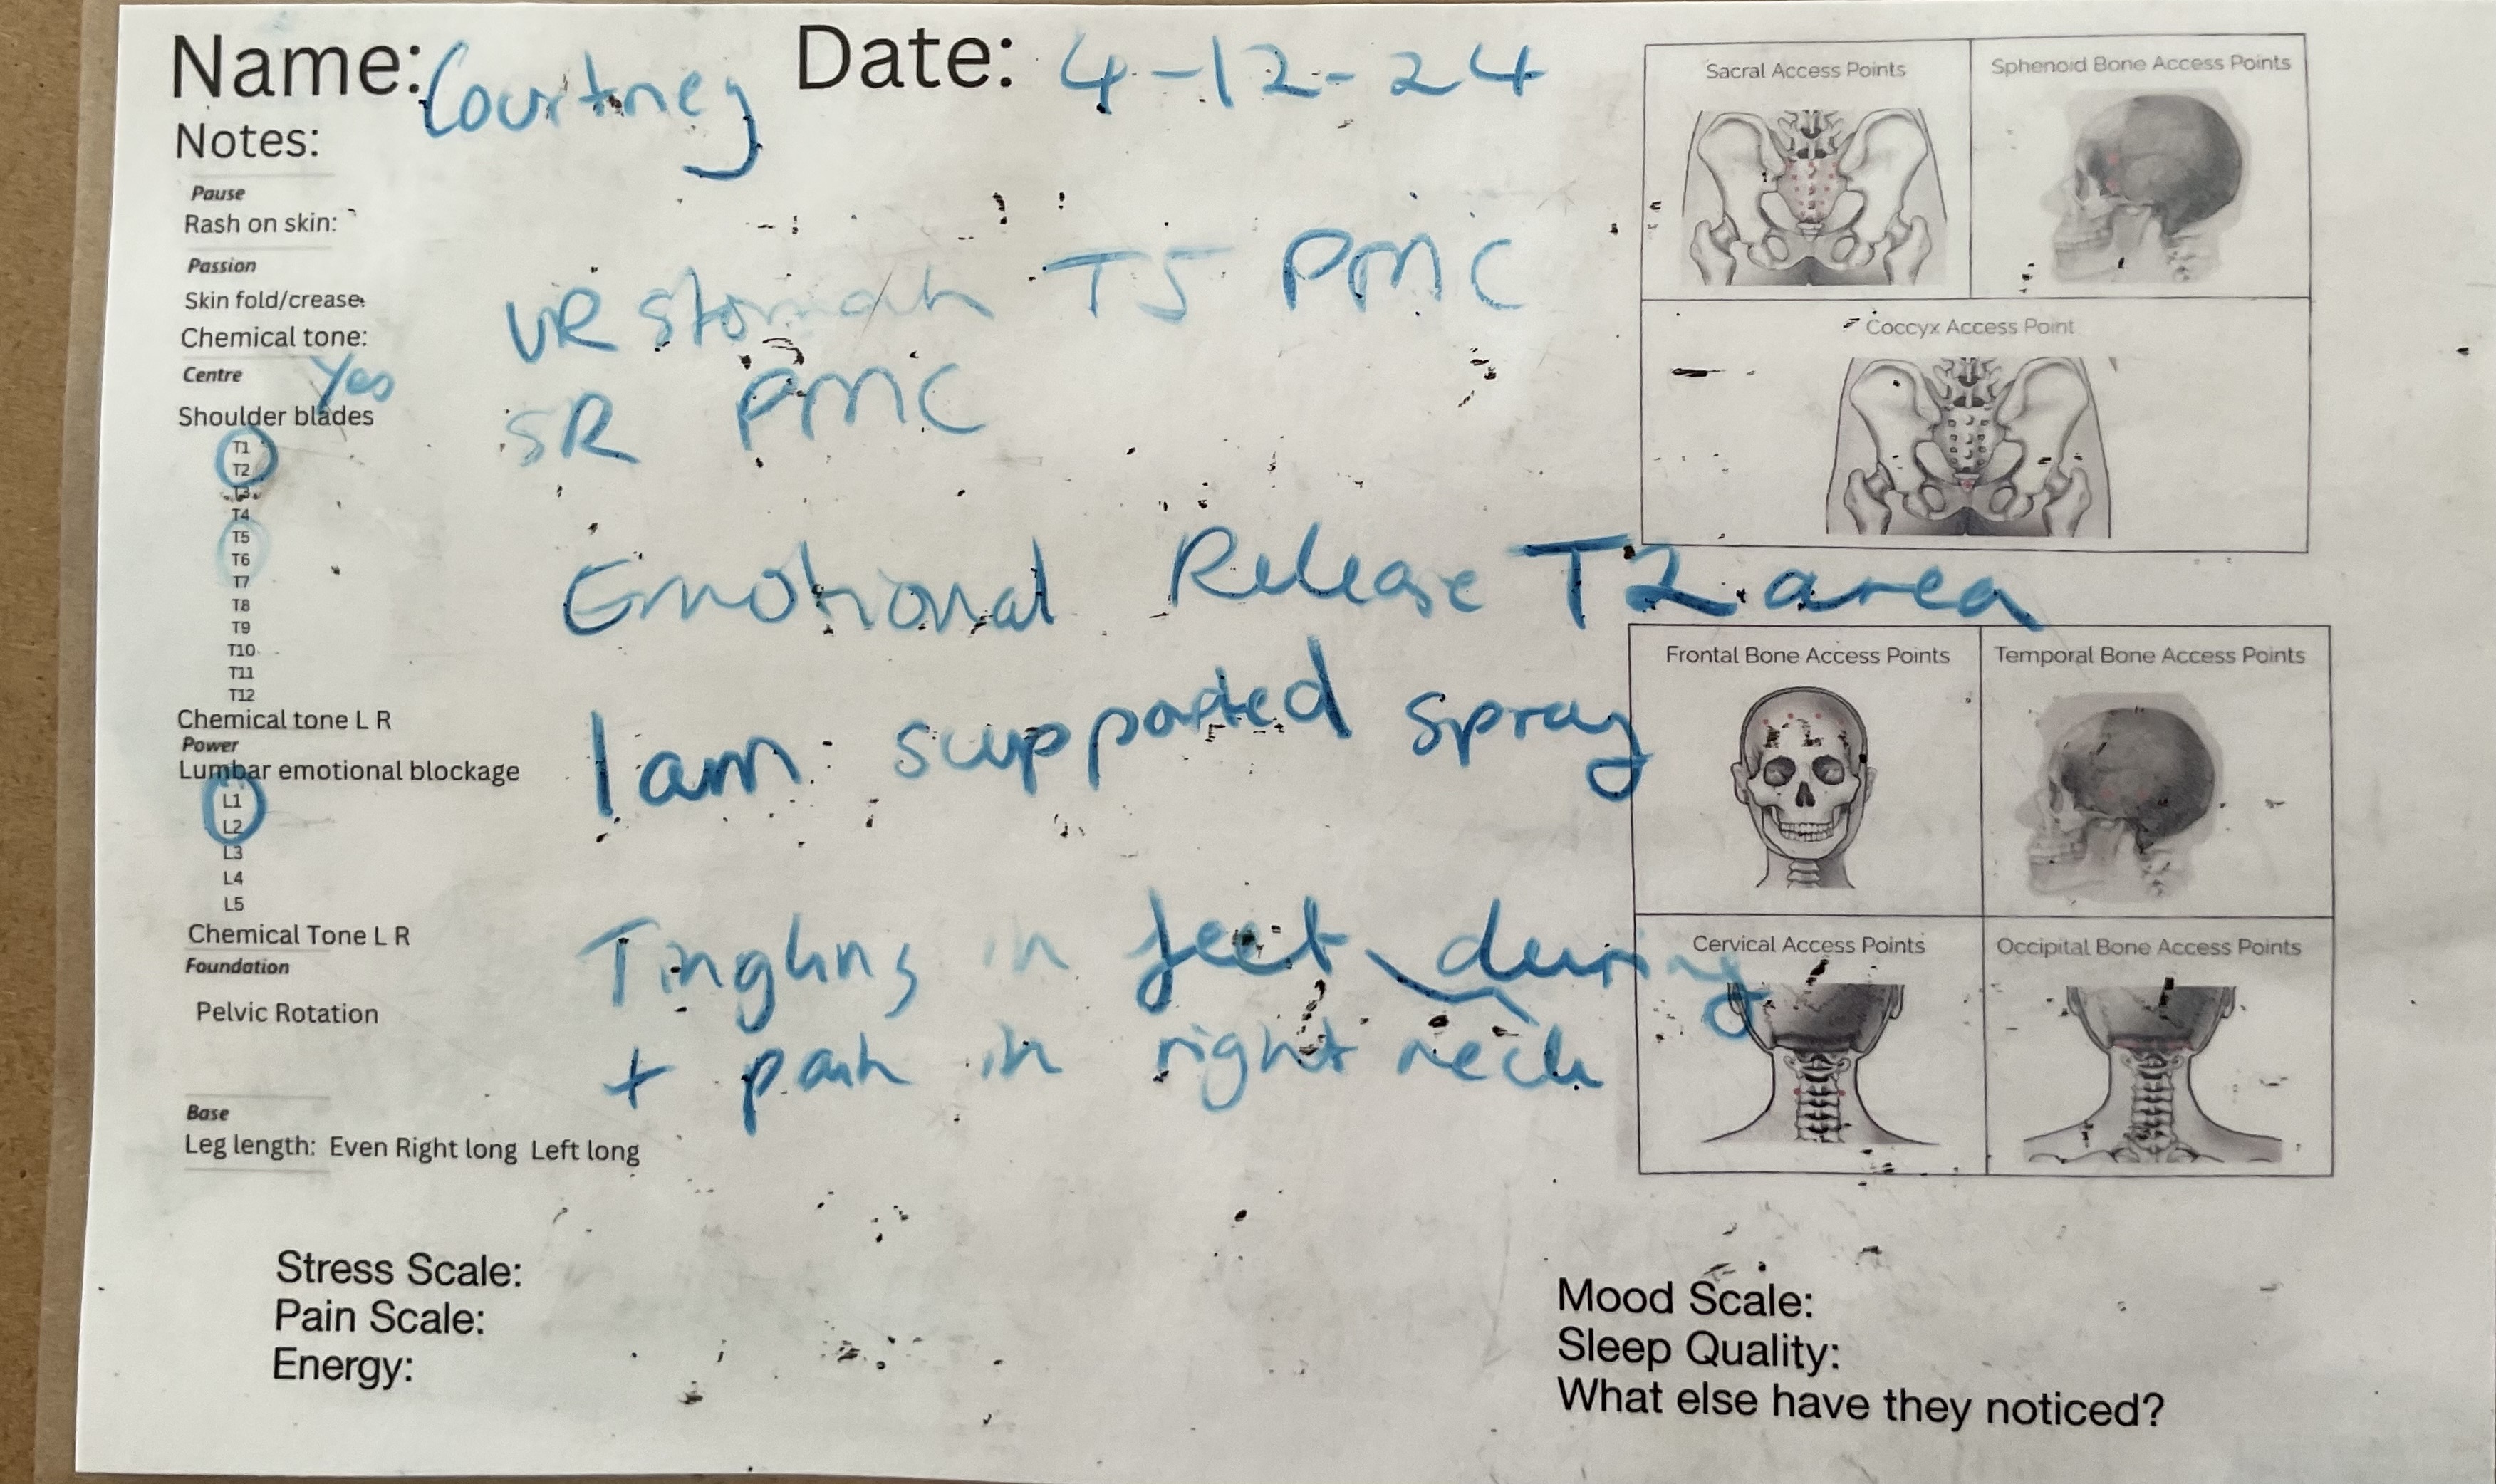 Name: Courtney
Date: 4-12-24
Notes:
Pause
Rash on skin:
Passion
Skin fold/crease:
Chemical tone:
Centre
Yes
Shoulder blades
T1
T2
T3
T4
T5
T6
T7
T8
T9
T10
T11
T12
Chemical tone L R
Power
Lumbar emotional blockage
L1
L2
L3
L4
L5
Chemical Tone L R
Foundation
Pelvic Rotation
Base
Leg length: Even Right long Left long
VR stomach T5 PMC
SR PMC
Emotional Release T2 area
I am supported spray
Tingling in feet during
+ pain in right neck
Sacral Access Points
Sphenoid Bone Access Points
Coccyx Access Point
Frontal Bone Access Points
Temporal Bone Access Points
Cervical Access Points
Occipital Bone Access Points
Stress Scale:
Pain Scale:
Energy:
Mood Scale:
Sleep Quality:
What else have they noticed?